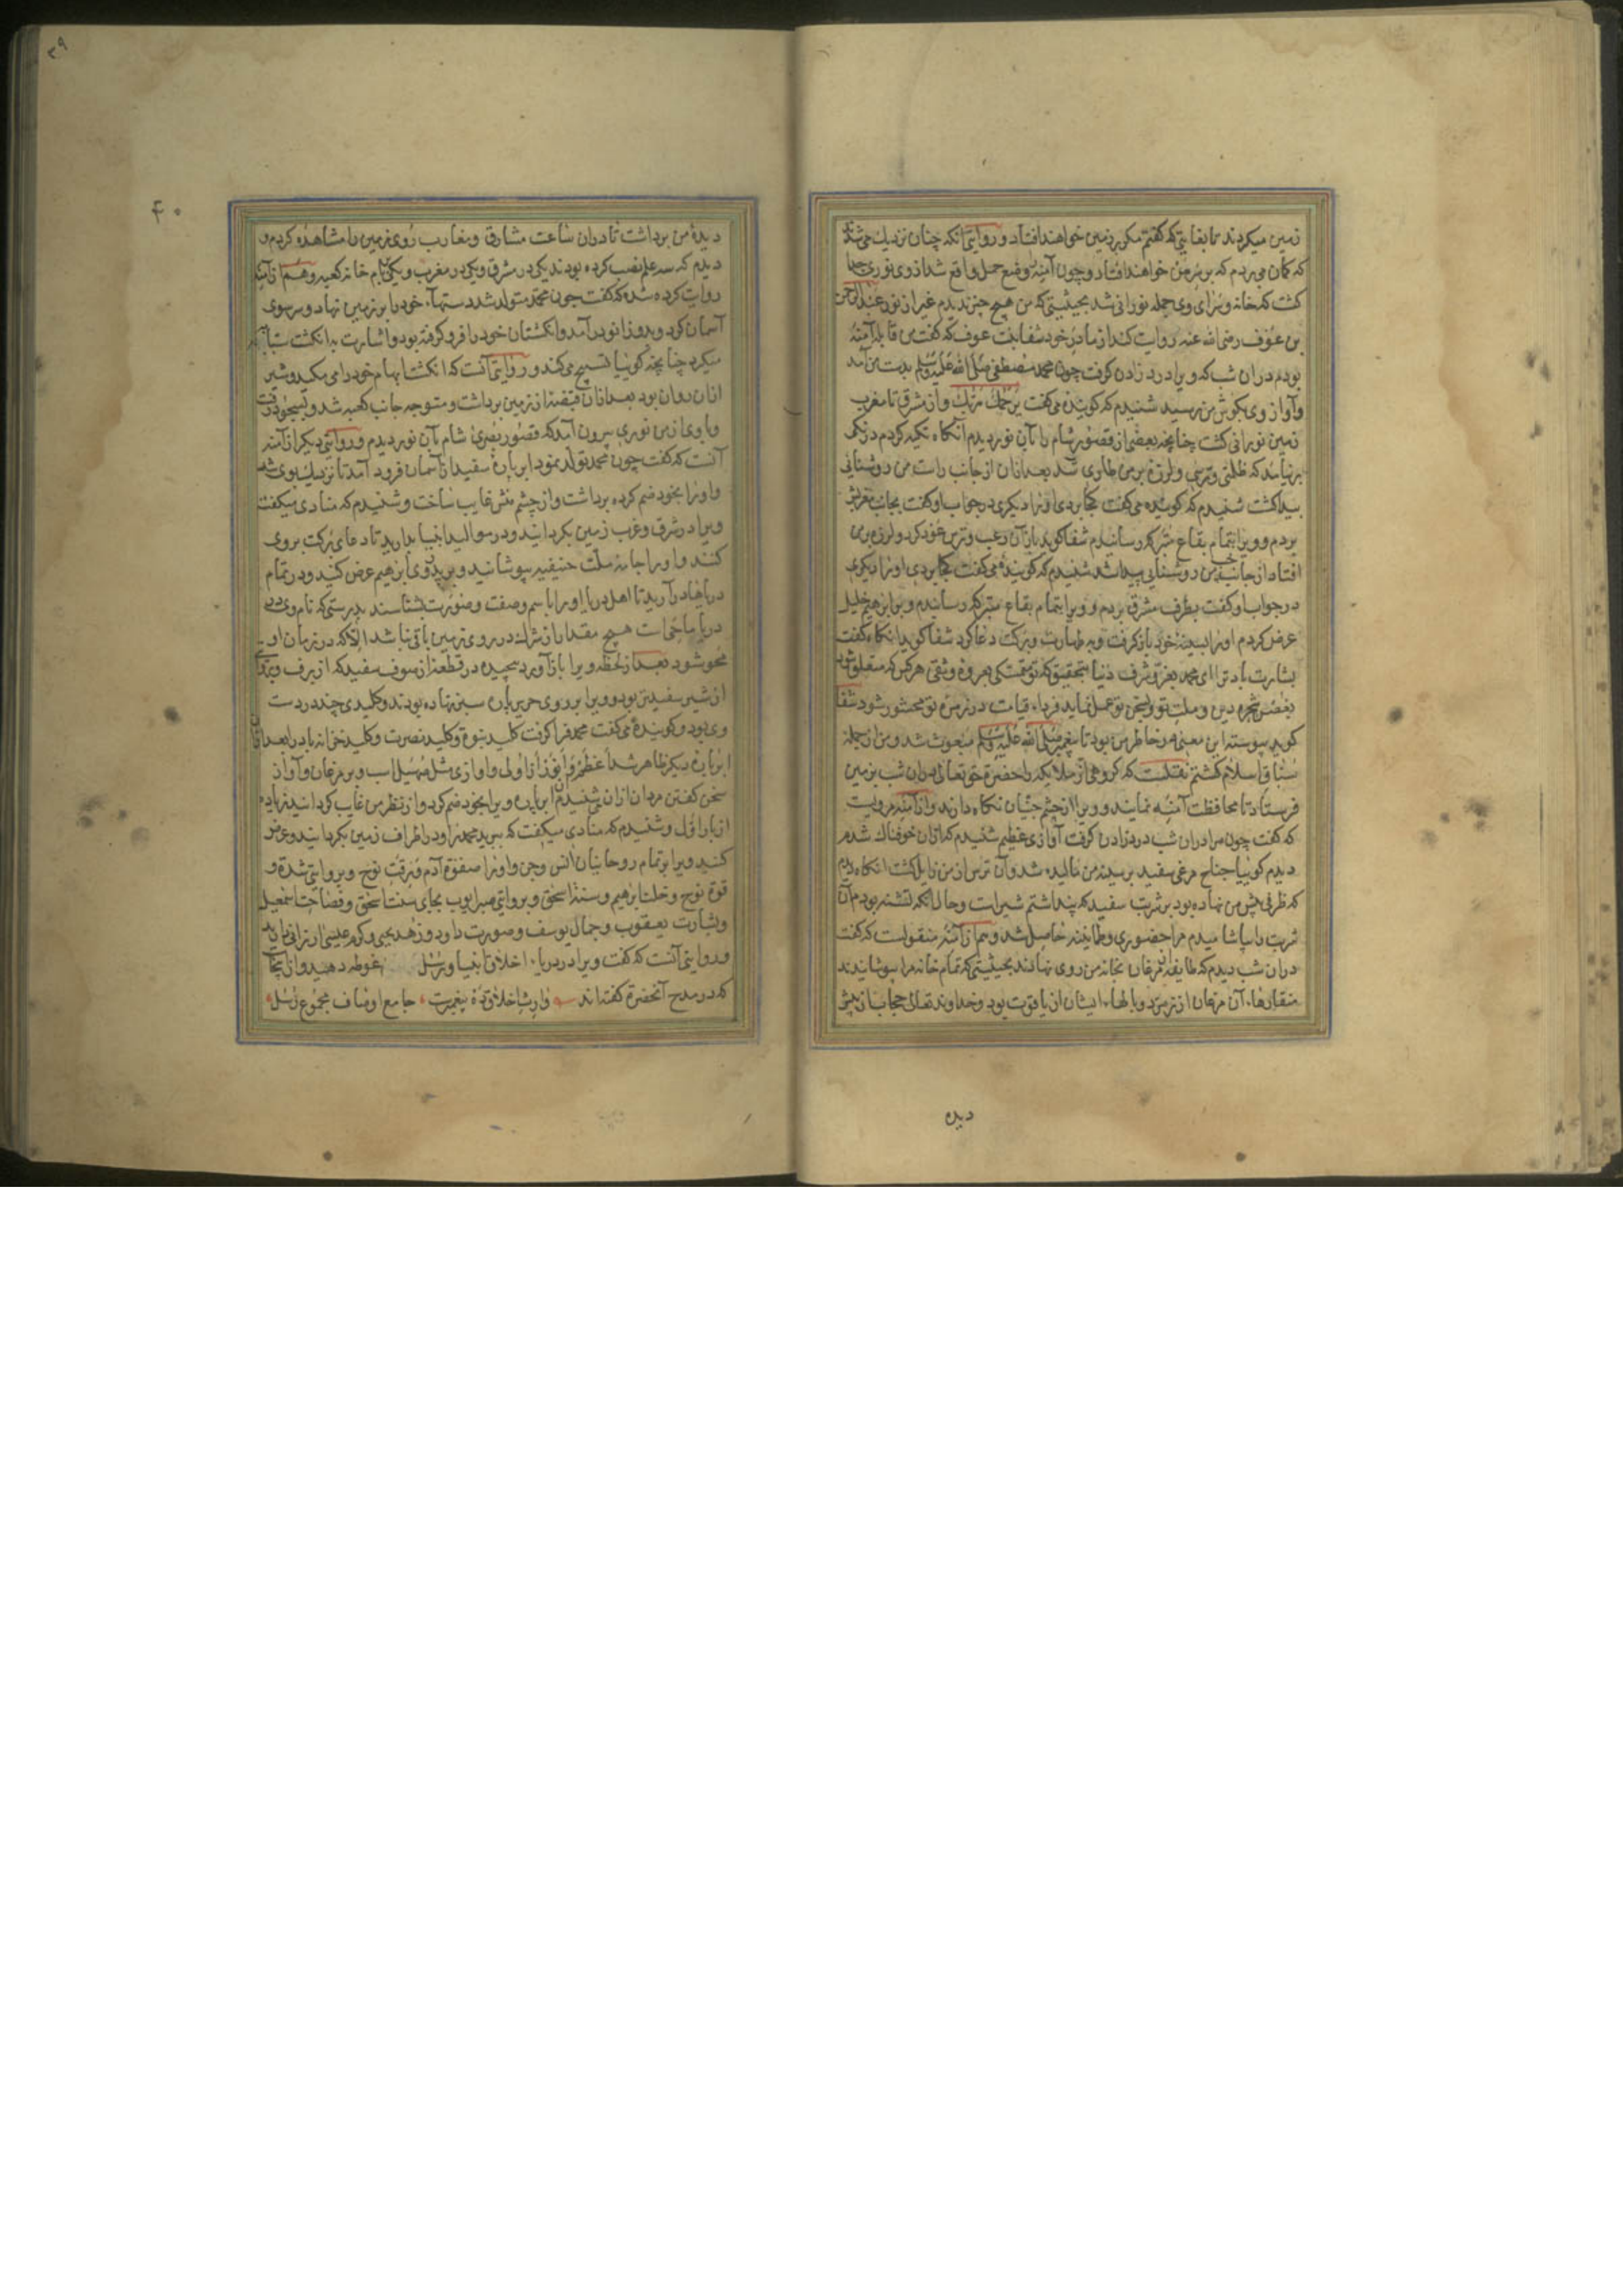 زمین میکردند تا بغایتی که گفتم مکر بر زمین خواهند افتاد و روایتی آنکه چنان نزدیك می شدند
که کمان می بردم که بر سر من خواهند افتاد و چون آمنه را وضع حمل واقع شد از وی نوری جدا
کشت که خانه و سرای وی جمله نورانی شد بحیثیتی که من هیچ چیز ندیدم غیر از نور عبد الرحمن
بن عوف رضی الله عنه روایت کند از مادر خود شفا بنت عوف که گفت من قابله آمنه
بودم در ان شب که ویرا درد زادن گرفت چون محمد مصطفی صلی الله علیه وسلم بدست من آمد
و آواز وی بکوش من رسید شنیدم که کوینده می گفت یرحمك ربك و از مشرق تا مغرب
زمین نورانی کشت چنانچه بعضی از قصور شام را بآن نور دیدم آنکاه تکیه کردم درنکی
بر نیامد که ظلمتی و ترسی و لرزه بر من طاری شد بعد ازان از جانب راست من روشنائی
پیدا کشت شنیدم که کوینده می گفت کجا بردی او را دیکری در جواب او گفت بجانب مغربش
بردم و ویرا بتمام بقاع متبرکه رسانیدم شفا کوید باز آن رعب و ترس عود کرد و لرزه بر من
افتاد از جانب چپ من روشنایی پیدا شد شنیدم که کوینده می گفت کجا بردی او را دیکری
در جواب او گفت بطرف مشرق بردم و ویرا بتمام بقاع متبرکه رساندم و بر ابرهیم خلیل
عرض کردم او را بسینه خود باز گرفت و به طهارت و برکت دعا کرد شفا کوید انکاه گفت
بشارت باد ترا ای محمد بعز و شرف دنیا بتحقیق که تو متمسکی بعروه وثقی هر کس که متعلق شود
بغصن شجره دین و ملت تو و بسخن تو عمل نماید فرداء قیامت در زمره تو محشور شود شفا
کوید پیوسته این معنی در خاطر من بود تا پیغمبر صلی الله علیه وسلم مبعوث شد و من از جمله
سباق اسلام کشتم نقلست که کروهی از ملایکه را حضرت حق تعالی دران شب بزمین
فرستاد تا محافظت آمنه نمایند و ویرا از چشم جنیان نکاه دارند و از آمنه مرویست
که گفت چون مرا دران شب درد زادن گرفت آوازی عظیم شنیدم که ازان خوفناك شدم
دیدم کوئیا جناح مرغی سفید بر سینه من مالیده شد و آن ترس از من زایل کشت انکاه دیدم
که ظرفی پیش من نهاده بود بر شربت سفید که پنداشتم شیر است و حال آنکه تشنه بودم آن
شربت را بیاشامیدم مرا حضوری و طمانینه حاصل شد و هم از آمنه منقولست که گفت
دران شب دیدم که طایفه از مرغان بخانه من روی نهادند بحیثیتی که تمام خانه مرا بپوشانیدند
منقارهاء آن مرغان از زمرد و بالهاء ایشان از یاقوت بود و خداوند تعالی حجاب از پیش
دیده
۳۹
۴۰
دیده من برداشت تا دران ساعت مشارق و مغارب روی زمین را مشاهده کردم و
دیدم که سه علم نصب کرده بودند یکی در مشرق و یکی در مغرب و یکی بر بام خانه کعبه و هم از آمنه
روایت کرده شده که گفت چون محمد متولد شد دستهاء خود را بر زمین نهاد و سر سوی
آسمان کرد و بدو زانو در آمد و انکشتان خود را فرو گرفته بود و اشارت به انکشت سبابه
میکرد چنانچه کوئیا تسبیح می کند و روایتی آنست که انکشت ابهام خود را می مکید و شیر
ازان روان بود بعد ازان قبضه از زمین برداشت و متوجه جانب کعبه شد و بسجود رفت
و با وی از من نوری بیرون آمد که قصور بصری شام بآن نور دیدم و روایتی دیکر از آمنه
آنست که گفت چون محمد تولد نمود ابر پاره سفید از آسمان فرود آمد تا نزدیك بوی شد
و او را بخود ضم کرده برداشت و از چشم منش غایب ساخت و شنیدم که منادی میکفت
ویرا در شرق و غرب زمین بکردانید و در موالید انبیا بدارید تا دعای برکت بر وی
کنند و او را جامه ملت حنیفیه بپوشانید و بر پدر وی ابرهیم عرض کنید و در تمام
دریاها در آرید تا اهل دریا او را باسم و صفت و صورت بشناسند بدرستی که نام وی در
دریا ماحی است هیچ مقدار از شرك در روی زمین باقی نباشد الا که در زمان او
محو شود بعد از لحظه ویرا باز آورد پیچیده در قطعه از صوف سفید که از برف و بروایتی
از شیر سفیدتر بود و ویرا بر روی حریر پاره سبز نهاده بودند و کلیدی چند در دست
وی بود و کوینده می گفت محمد فرا گرفت کلید نبوة و کلید نصرت و کلید خزانه باد را بعد ازان
ابر پاره دیکر ظاهر شد اعظم و انور از اولی و آوازی مثل صهیل اسب و پر مرغان و آواز
سخن گفتن مردان ازان می شنیدم آن ابر پاره ویرا بخود ضم کرد و از نظر من غایب کردانید زیاده
از بار اول و شنیدم که منادی میکفت که ببرید محمد را و در اطراف زمین بکردانید و عرض
کنید ویرا بر تمام روحانیان انس و جن و او را صفوة آدم و رقت نوح و بروایتی شدة و
قوة نوح و خلت ابرهیم و سنت اسحق و بروایتی صبر ایوب بجای سنت اسحق و فصاحت اسمعیل
و بشارت یعقوب و جمال یوسف و صورت داود و زهد یحیی و کرم عیسی ارزانی دارید
و روایتی آنست که گفت ویرا در دریاء اخلاق انبیا و رسل غوطه دهید و از اینجا
که در مدح آنحضرة گفته اند وارث اخلاق ده پیغمبرست جامع اوصاف مجموع رسل